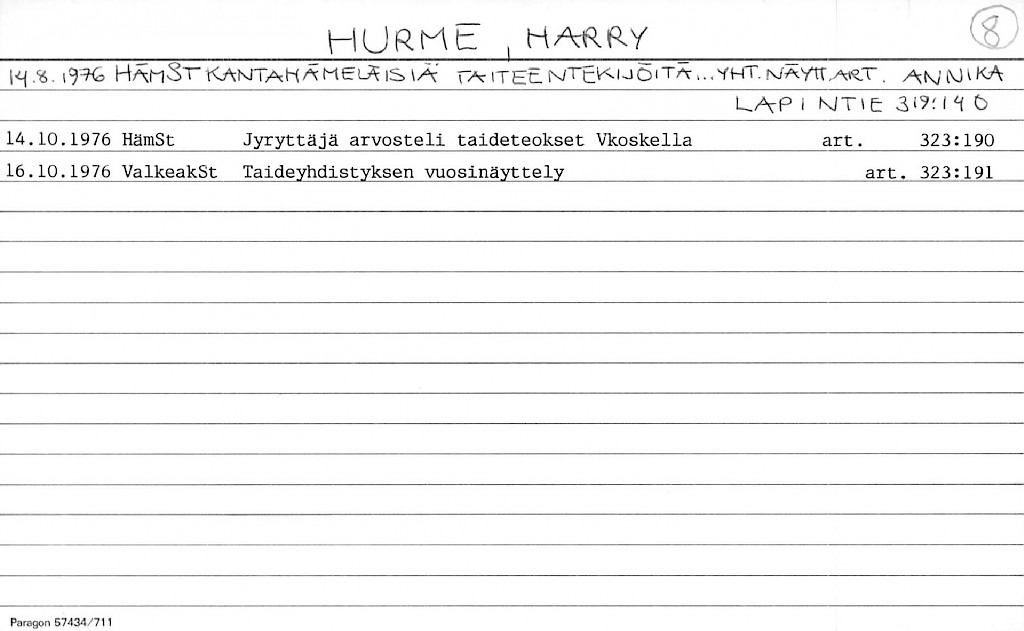 HURME, HARRY 8
14.8.1976 HÄMST KANTAHÄMELÄISIÄ TAITEENTEKIJÖITÄ...YHT.NÄYTT.ART. ANNIKA
LAPINTIE 319:140
14.10.1976 HämSt Jyryttäjä arvosteli taideteokset Vkoskella art. 323:190
16.10.1976 ValkeakSt Taideyhdistyksen vuosinäyttely art. 323:191
Paragon 57434/711